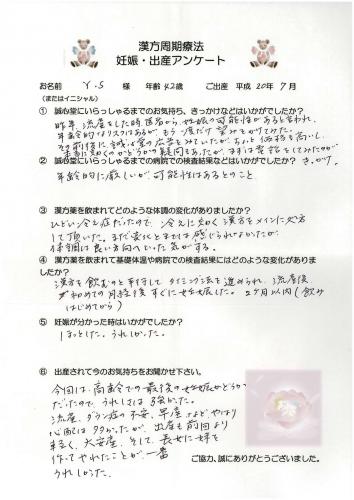 漢方周期療法
妊娠・出産アンケート
お名前 Y.S 様 年齢 42歳 ご出産 平成 20年 9月
(またはイニシャル)
① 誠心堂にいらっしゃるまでのお気持ち、きっかけなどはいかがでしたか?
昨年、流産をした時、医者から、妊娠の可能性があると言われ、
年齢的なリスクはあるが、もう一度だけ望みをかけてみた。
② 誠心堂にいらっしゃるまでの病院での検査結果などはいかがでしたか?
年齢的に厳しいが可能性はあるとのこと
③ 漢方薬を飲まれてどのような体調の変化がありましたか?
ひどい冷え症だったので、冷えに効く漢方をメインに処方
して頂いた。まだ変化とまでは感じられなかったが、
体調は良い方向といった気がする。
④ 漢方薬を飲まれて基礎体温や病院での検査結果にはどのような変化がありま
したか?
漢方を飲むのと平行してタイミング法を進められ、流産後
初めての月経後すぐに妊娠した。2ヶ月以内(飲み
はじめてから)
⑤ 妊娠が分かった時はいかがでしたか?
ほっとした。うれしかった。
⑥ 出産されて今のお気持ちをお聞かせ下さい。
今回は、高齢での最後の妊娠かどうか
だったので、うれしさは3倍かった。
流産、ダウン症の不安、早産、などやはり
心配は多かったが、出産も前回より
軽く、大安産、そして、長女に妹を
作ってやれたことが、一番
うれしかった。
ご協力、誠にありがとうございました。